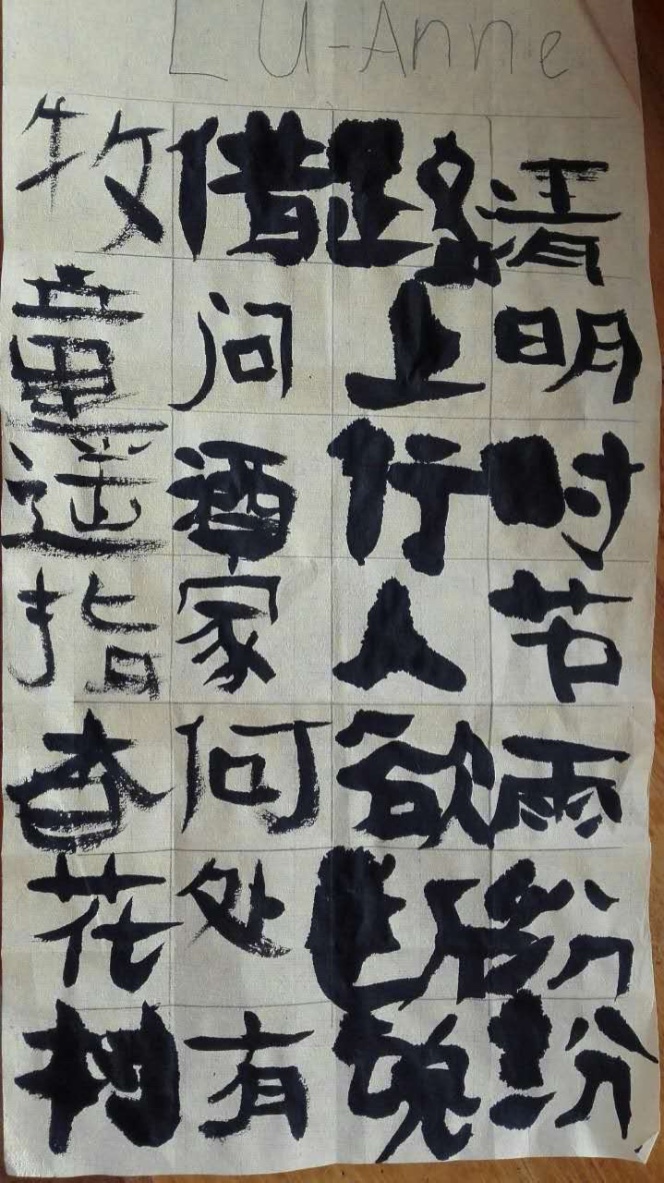 LU-Anne
清明时节雨纷纷
路上行人欲断魂
借问酒家何处有
牧童遥指杏花村